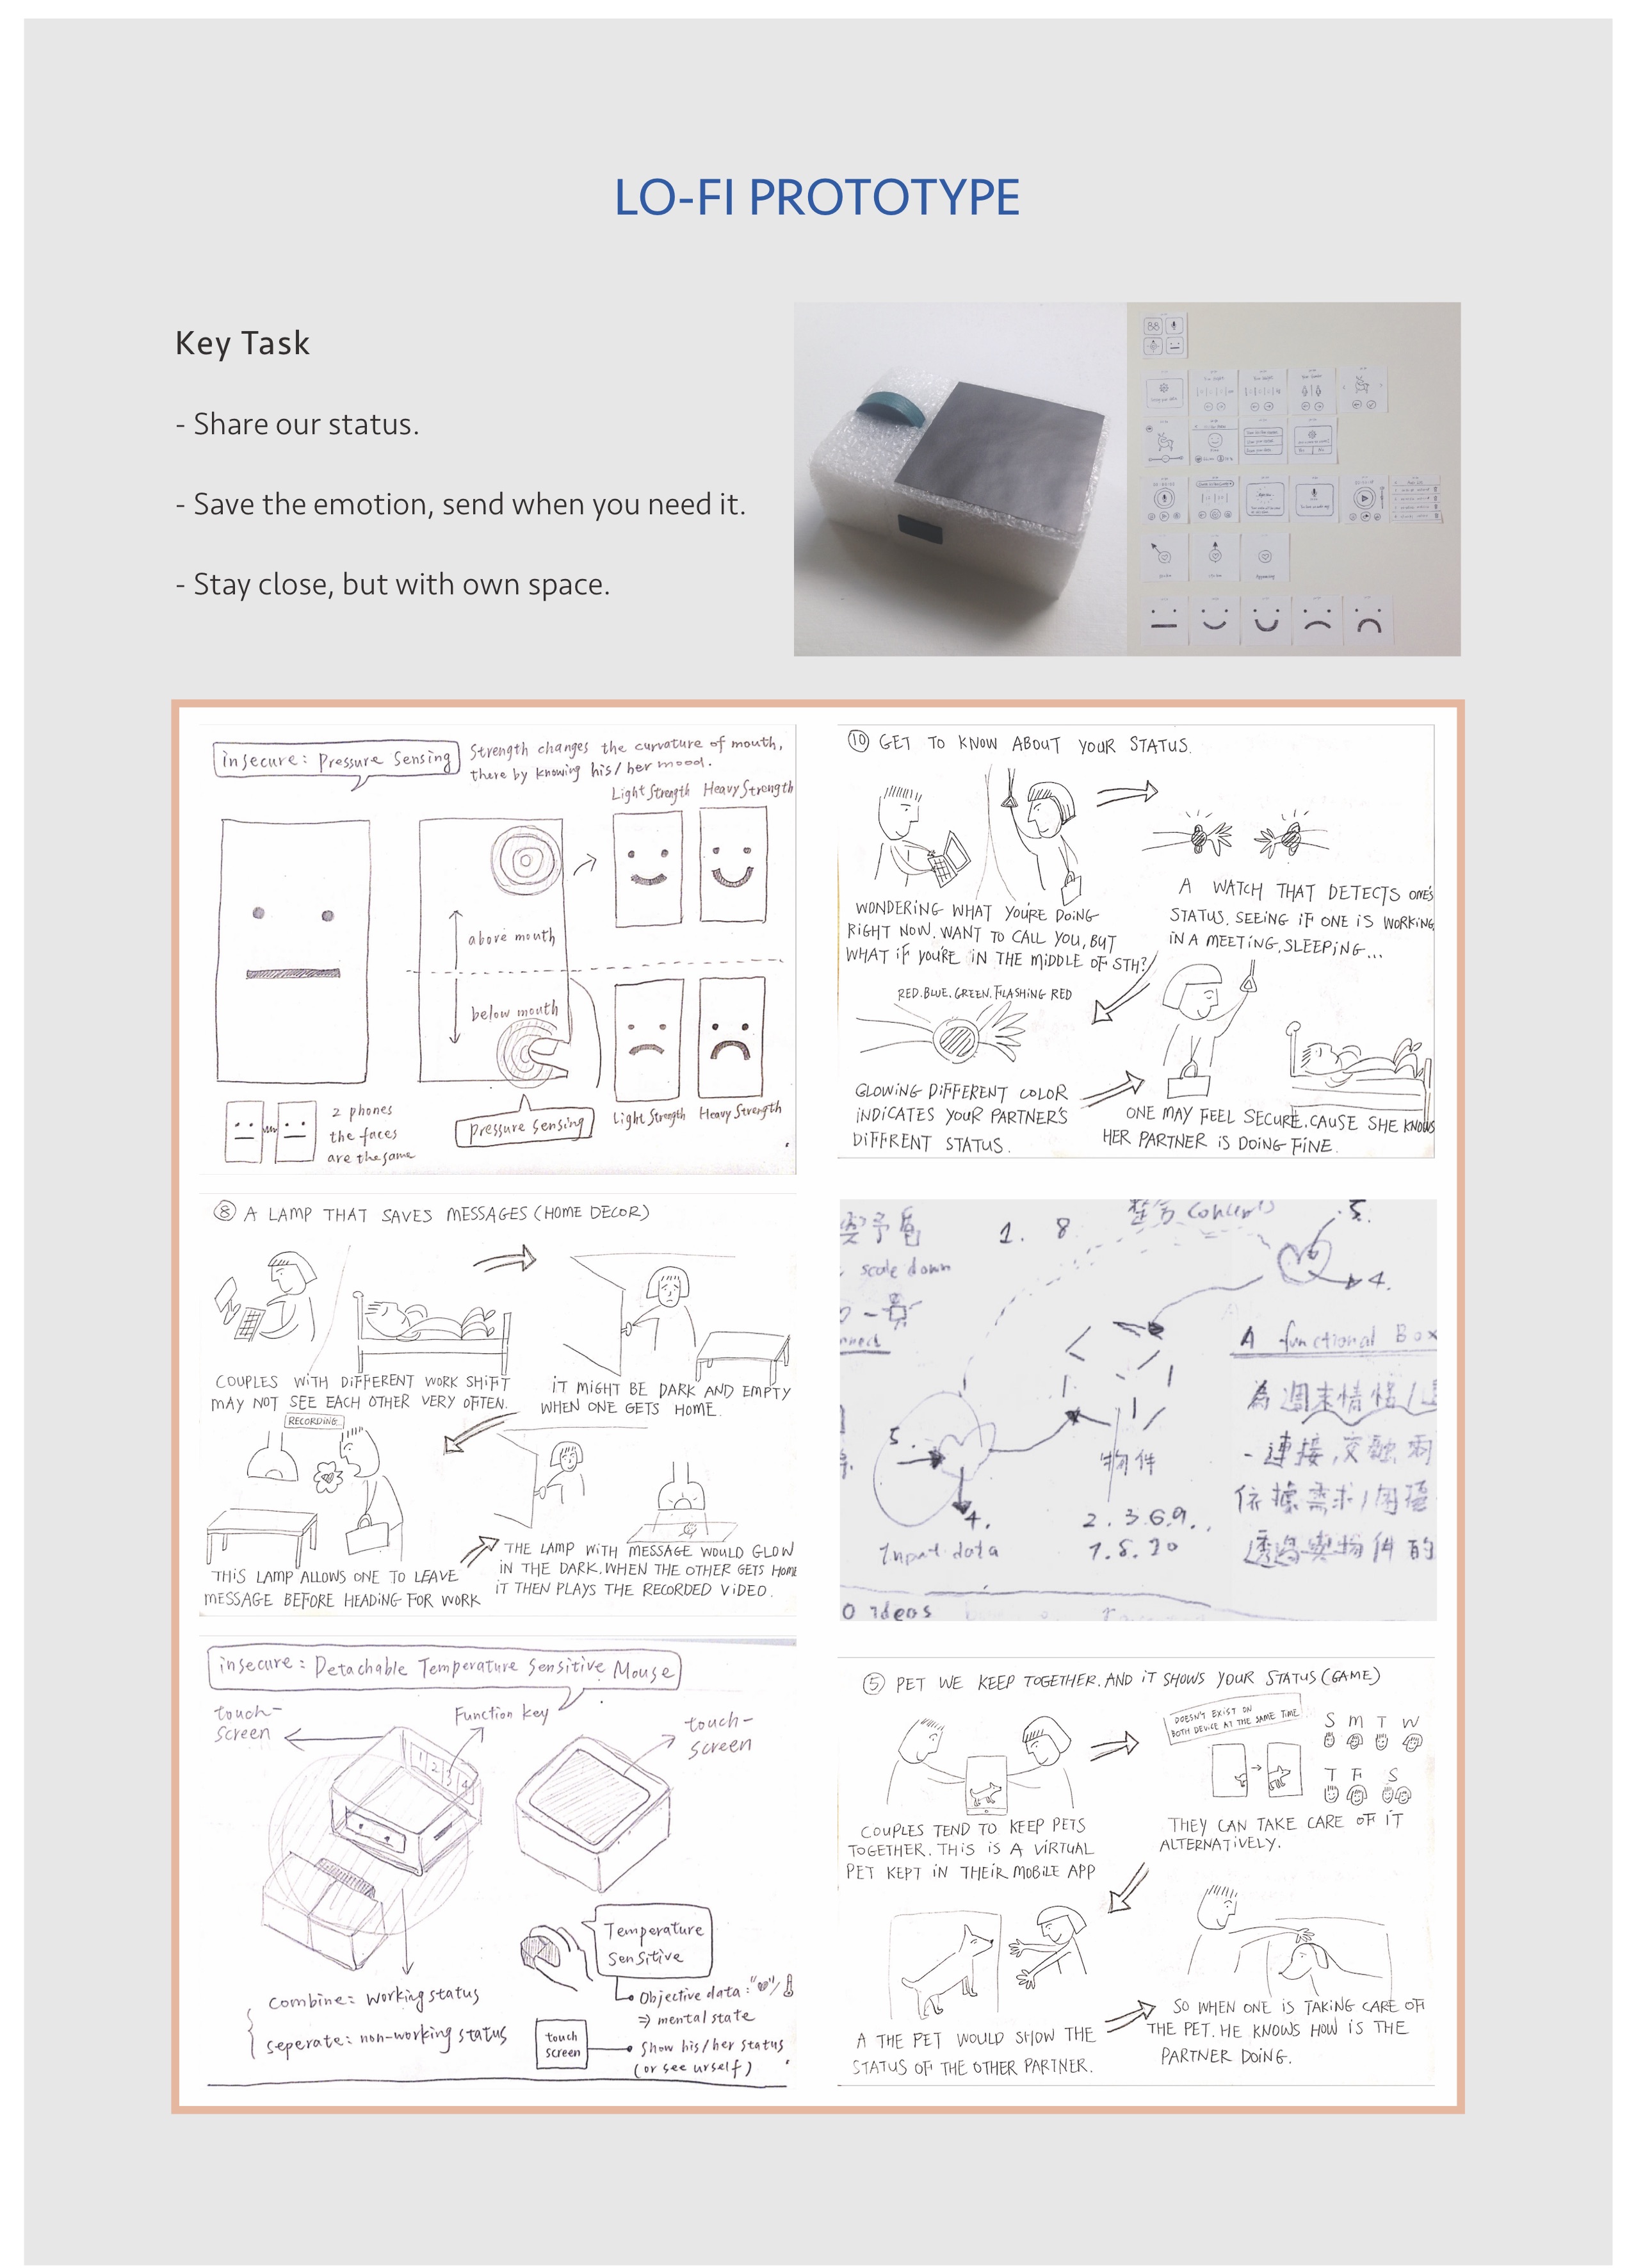 LO-FI PROTOTYPE
Key Task
- Share our status.
- Save the emotion, send when you need it.
- Stay close, but with own space.
insecure: Pressure Sensing
Strength changes the curvature of mouth,
there by knowing his/her mood.
Light Strength
Heavy Strength
above mouth
below mouth
Light Strength
Heavy Strength
pressure sensing
2 phones
the faces
are the same
10 GET TO KNOW ABOUT YOUR STATUS.
WONDERING WHAT YOU'RE DOING
RIGHT NOW. WANT TO CALL YOU, BUT
WHAT IF YOU'RE IN THE MIDDLE OF STH?
A WATCH THAT DETECTS ONE'S
STATUS. SEEING IF ONE IS WORKING,
IN A MEETING, SLEEPING...
RED. BLUE. GREEN. FLASHING RED
GLOWING DIFFERENT COLOR
INDICATES YOUR PARTNER'S
DIFFRENT STATUS.
ONE MAY FEEL SECURE, CAUSE SHE KNOWS
HER PARTNER IS DOING FINE.
8 A LAMP THAT SAVES MESSAGES (HOME DECOR)
COUPLES WITH DIFFERENT WORK SHIFT
MAY NOT SEE EACH OTHER VERY OFTEN.
IT MIGHT BE DARK AND EMPTY
WHEN ONE GETS HOME.
RECORDING...
THIS LAMP ALLOWS ONE TO LEAVE
MESSAGE BEFORE HEADING FOR WORK
THE LAMP WITH MESSAGE WOULD GLOW
IN THE DARK. WHEN THE OTHER GETS HOME
IT THEN PLAYS THE RECORDED VIDEO.
1. 8
5.
scale down
4.
A functional Box
- 連接,交融
5.
物件
依據需求/困擾
4.
2. 3. 6. 9.
Input data
物件的
0 ideas
insecure: Detachable Temperature Sensitive Mouse
touch-
screen
Function key
touch-
screen
1 2 3 4
Temperature
Sensitive
Objective data:
⇒ mental state
combine: working status
seperate: non-working status
touch
screen
show his/her status
(or see urself)
5 PET WE KEEP TOGETHER. AND IT SHOWS YOUR STATUS (GAME)
DOESN'T EXIST ON
BOTH DEVICE AT THE SAME TIME
S M T W
T F S
COUPLES TEND TO KEEP PETS
TOGETHER. THIS IS A VIRTUAL
PET KEPT IN THEIR MOBILE APP
THEY CAN TAKE CARE OF IT
ALTERNATIVELY.
A THE PET WOULD SHOW THE
STATUS OF THE OTHER PARTNER.
SO WHEN ONE IS TAKING CARE OF
THE PET. HE KNOWS HOW IS THE
PARTNER DOING.